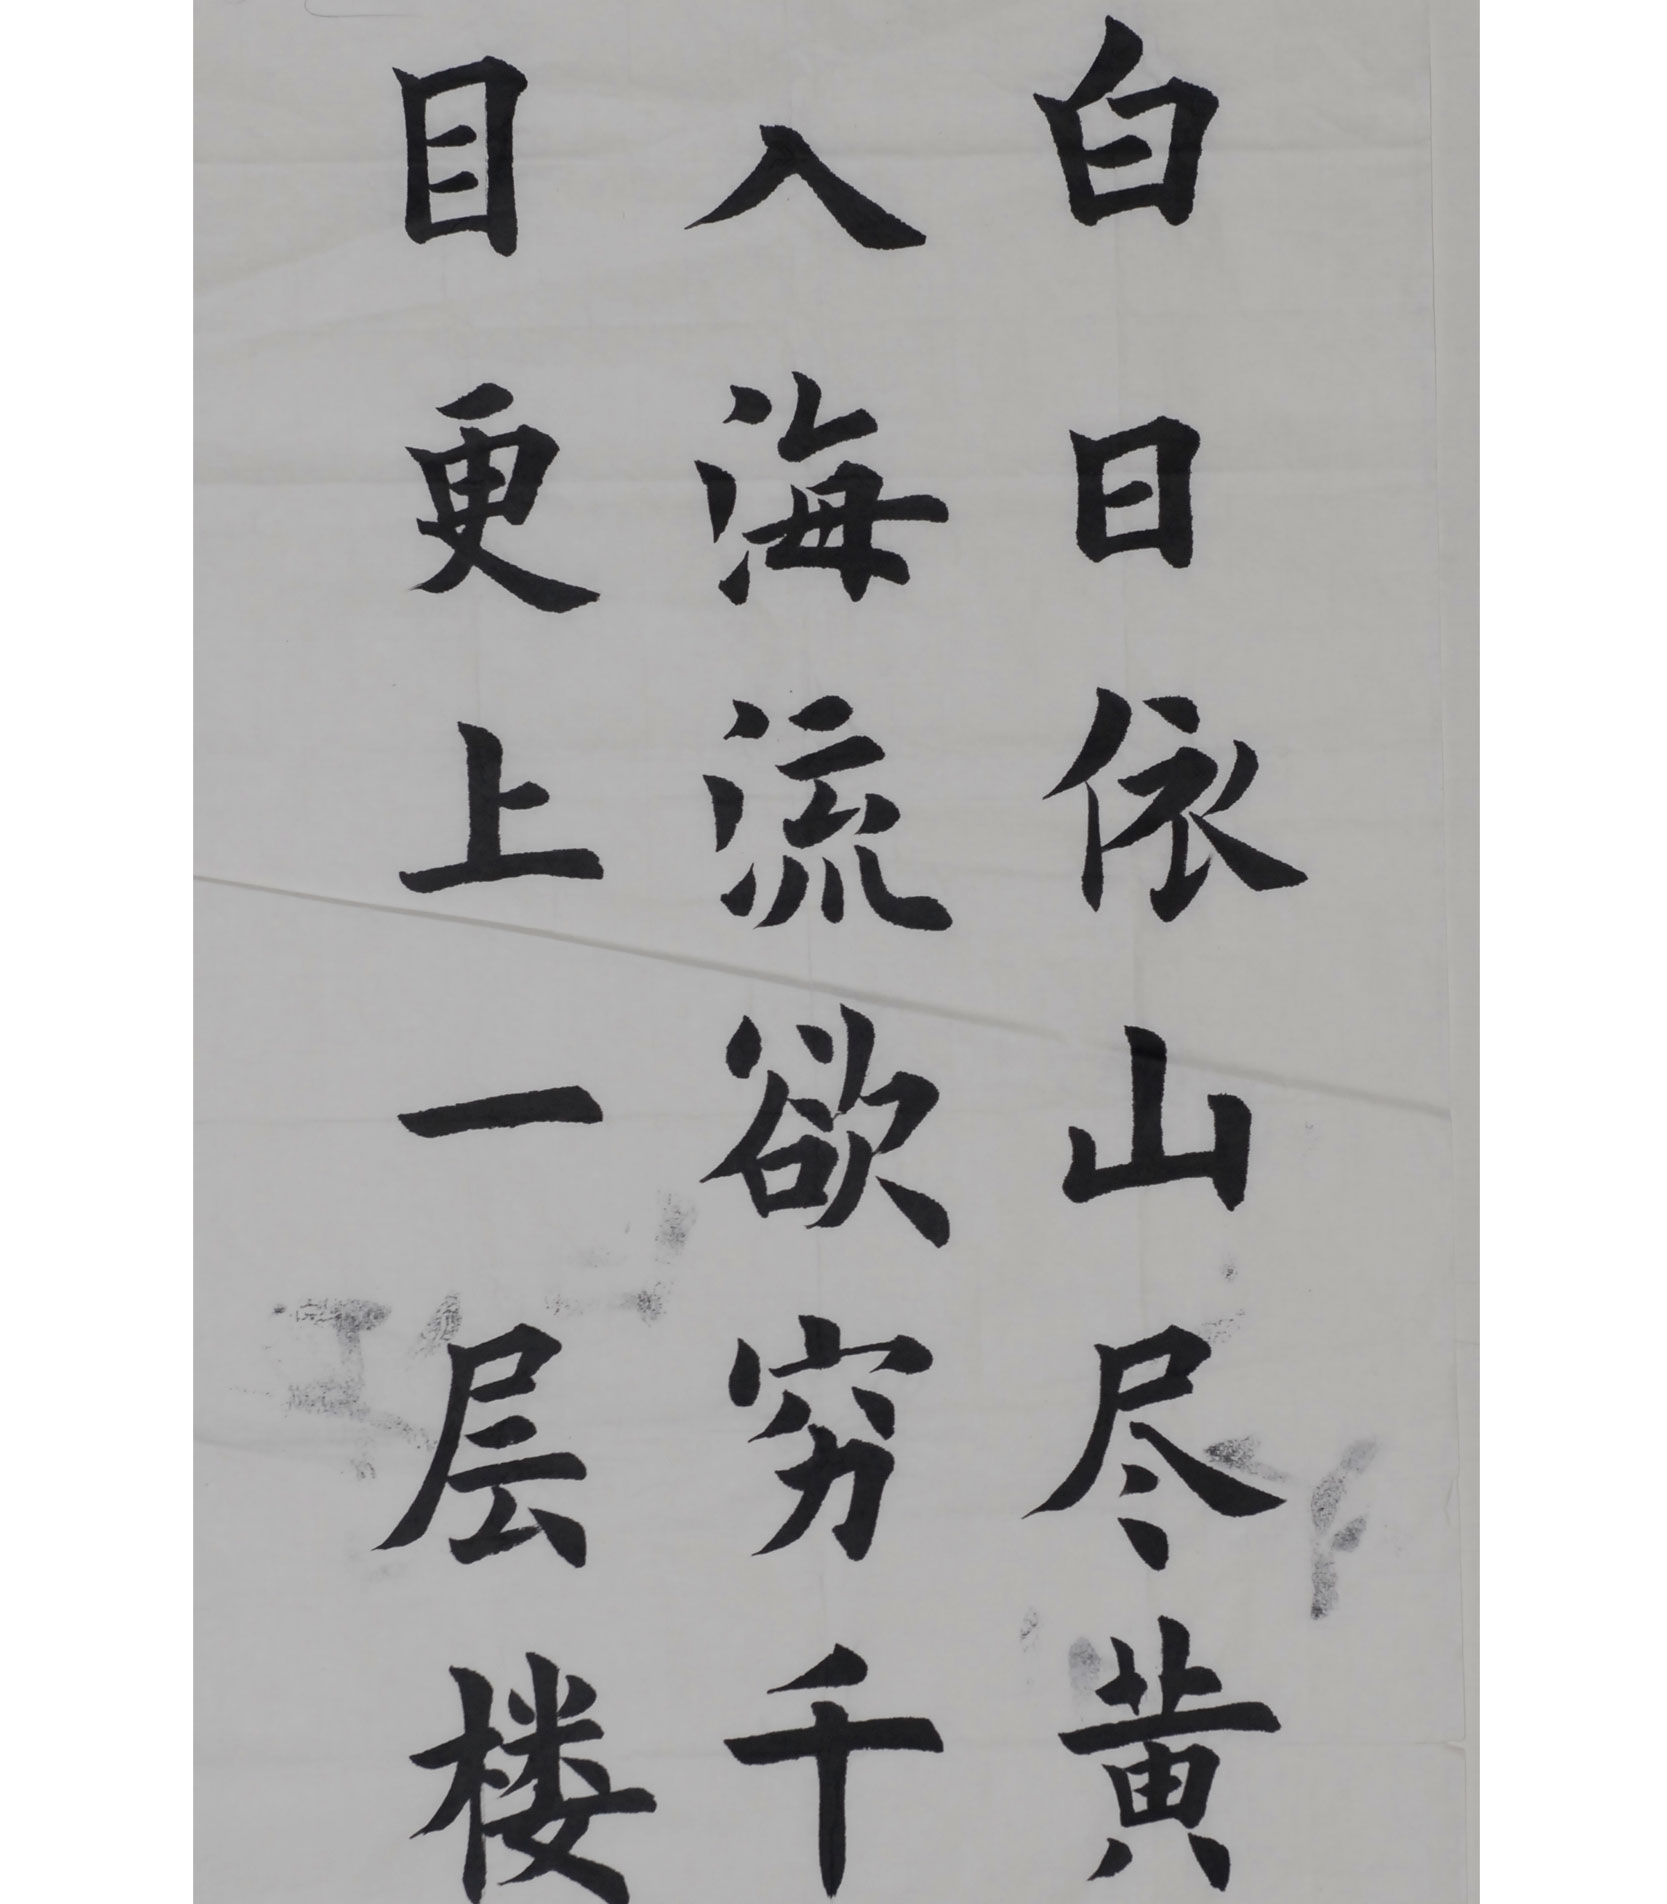 白日依山尽黄
入海流欲穷千
目更上一层楼